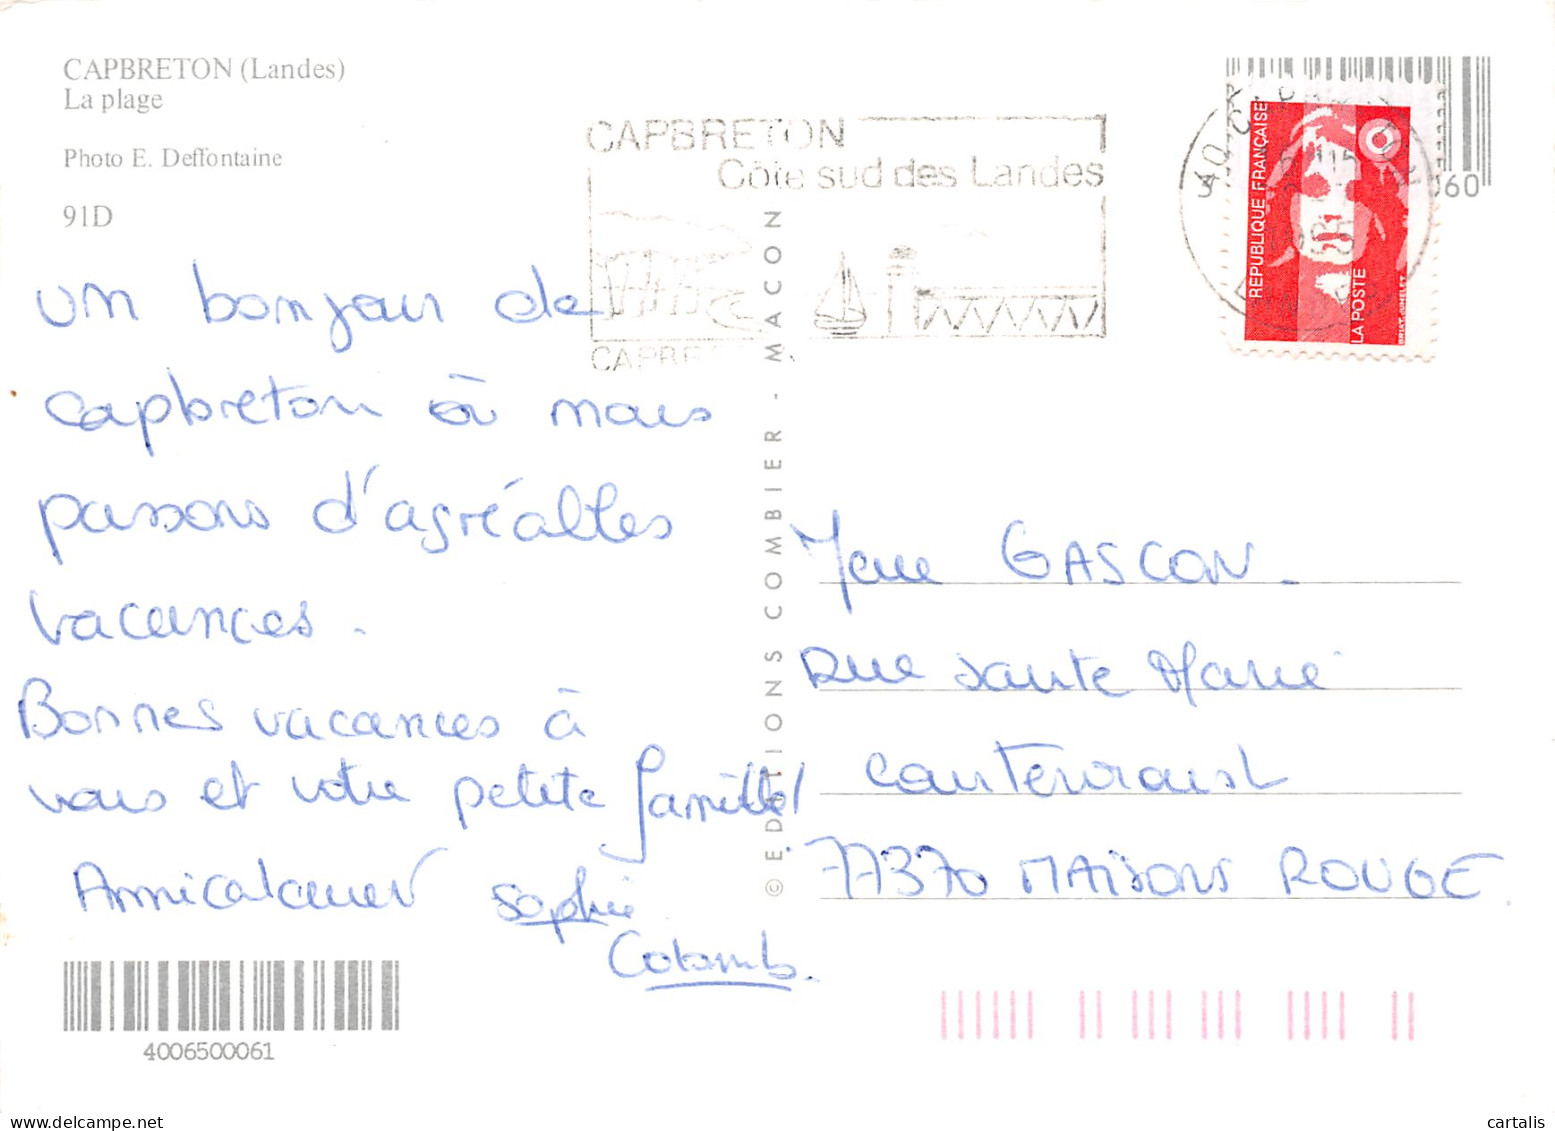 CAPBRETON (Landes)
La plage
Photo E. Deffontaine
91D
un bonjour de
capbreton où nous
passons d'agréables
vacances.
Bonnes vacances à
vous et votre petite famille!
Amicalement sophie
Colomb.
CAPBRETON
Côte sud des Landes
© EDITIONS COMBIER - MACON
REPUBLIQUE FRANÇAISE
LA POSTE
BRIAT-JUMELET
060
Mme GASCON
Rue sainte Marie
77370 MAISONS ROUGE
4006500061
cartalis